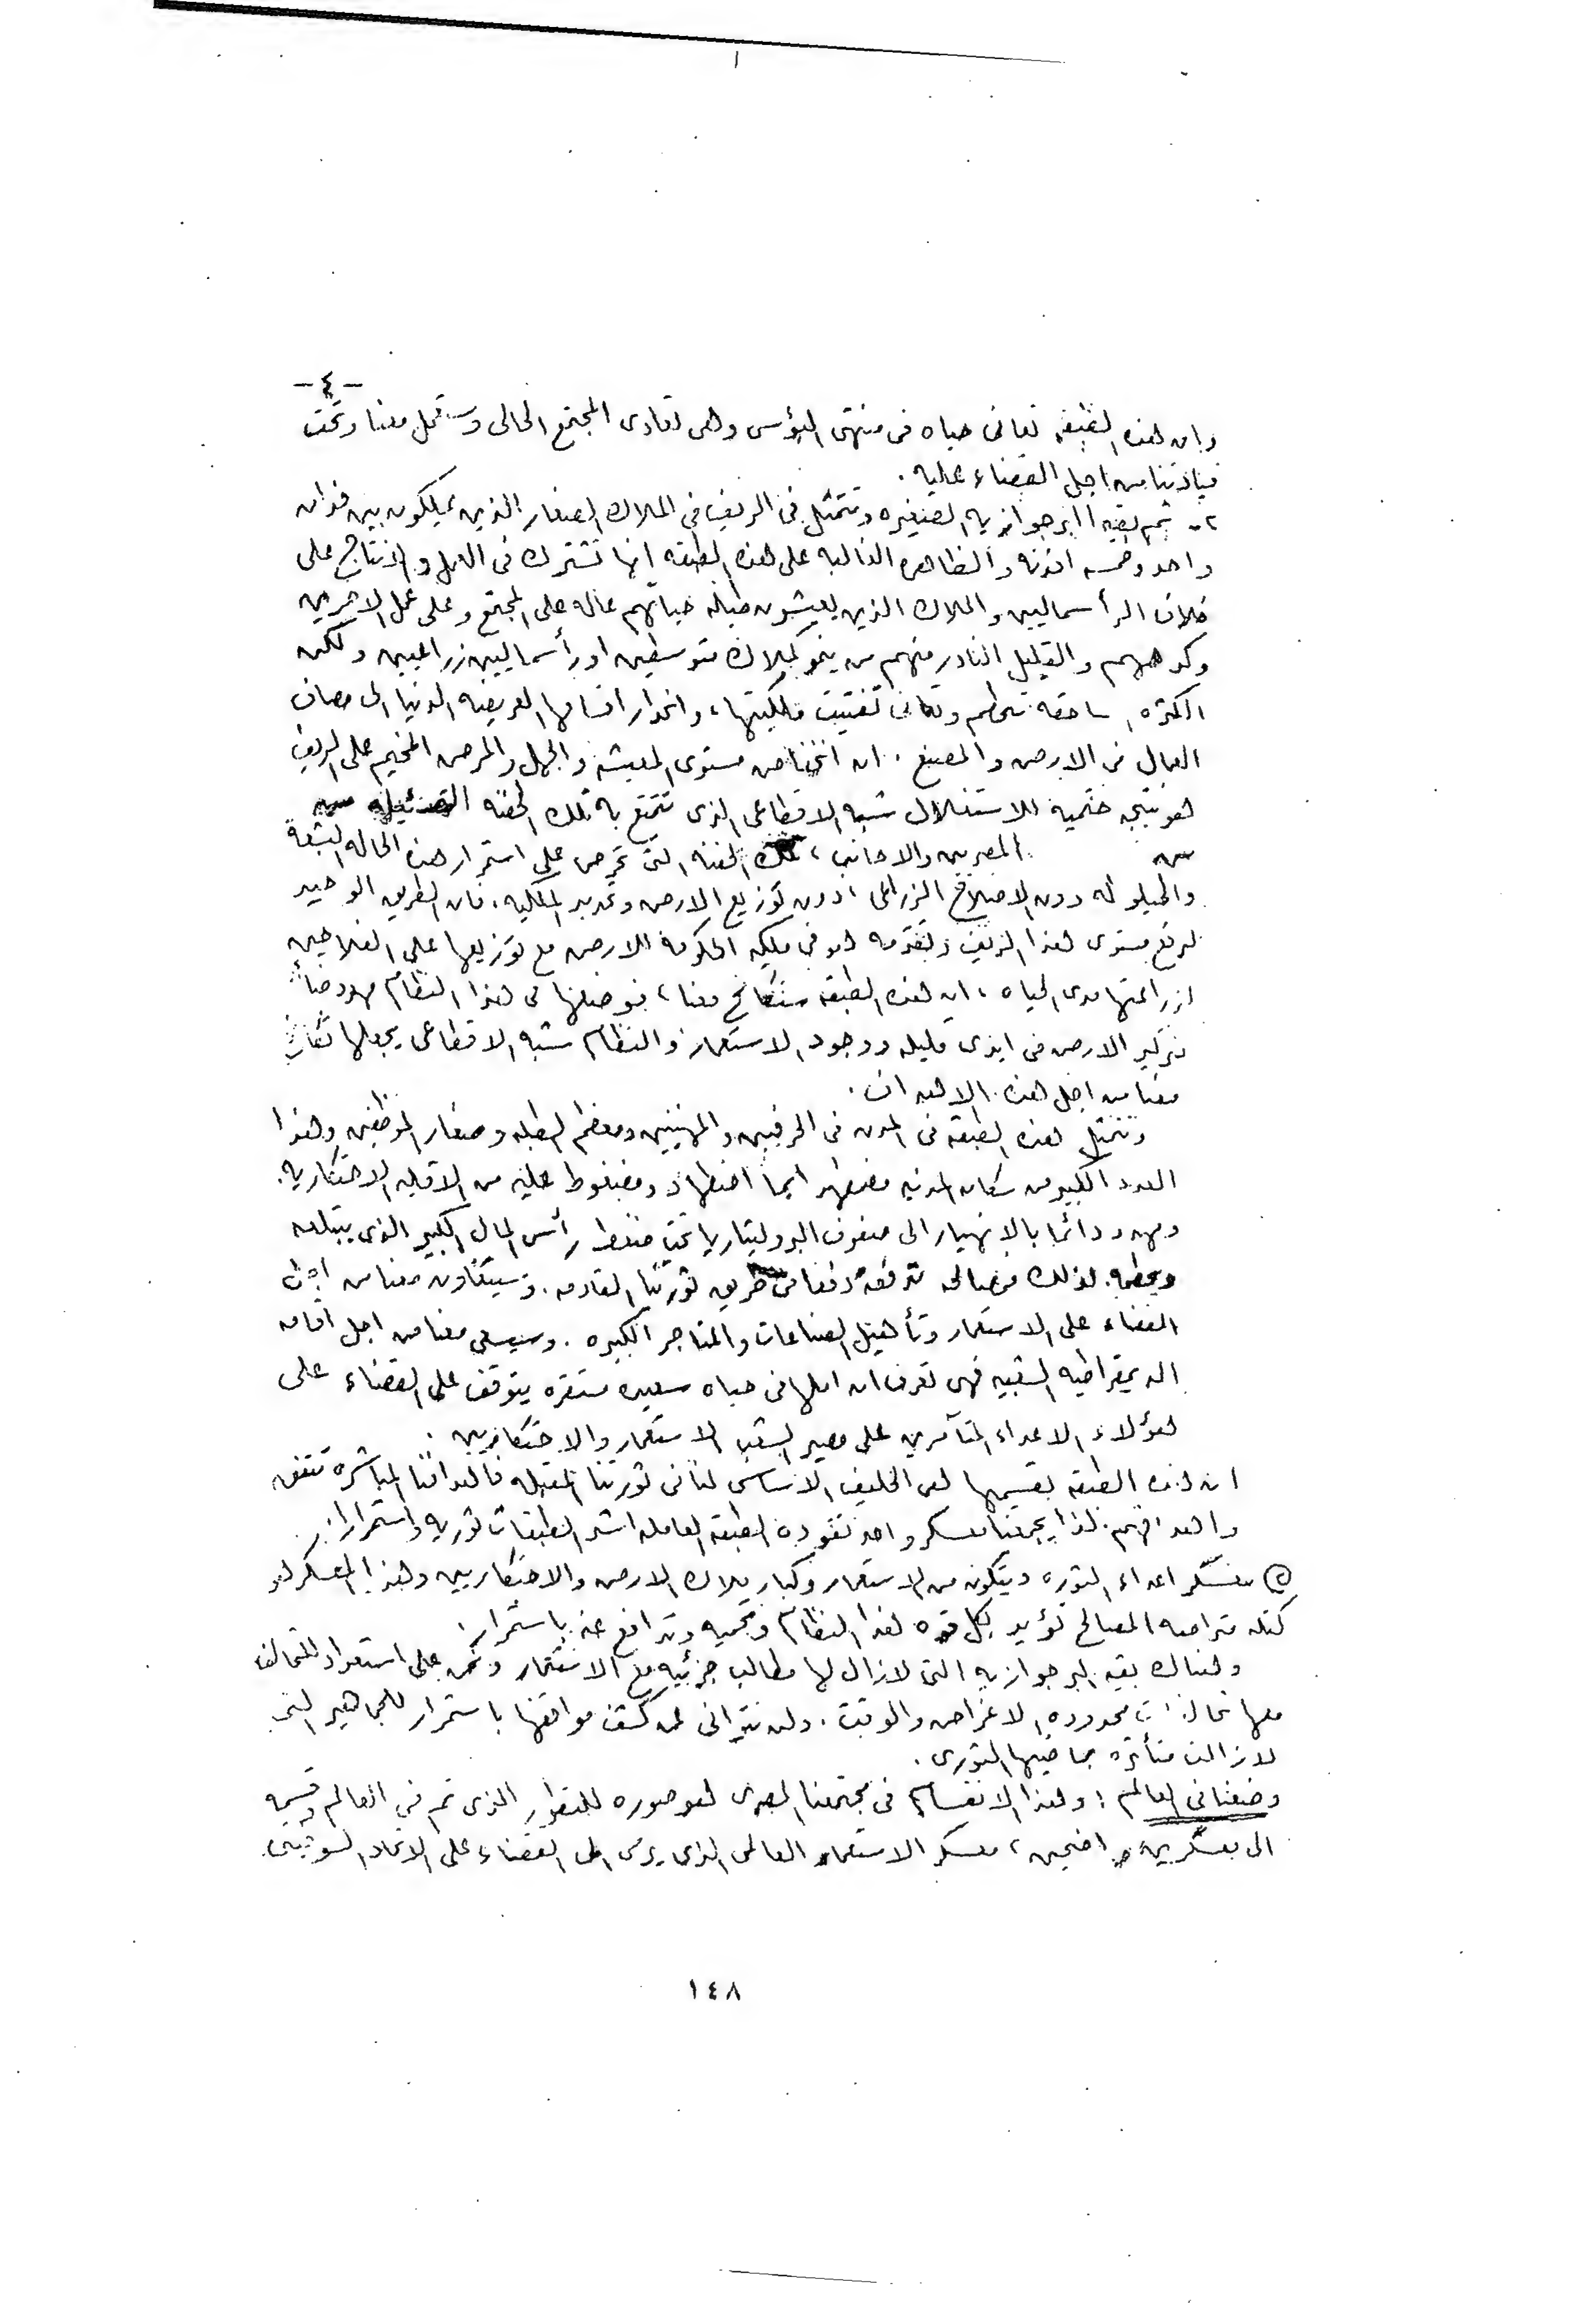 -٤-
وان هذه الطبقه تعانى حياه فى منتهى البؤس وهى تعادى المجتمع الحالى وستعمل معنا وتحت
قيادتنا من اجل القضاء عليه .
٢- ثم بقيه البرجوازيه الصغيره وتتمثل فى الريف فى الملاك الصغار الذين يملكون بين فدان
واحد وخمسه افدنه والظاهره الغالبه على هذه الطبقه انها تشترك فى العمل والانتاج على
خلاف الرأسماليين والملاك الذين يعيشون طيله حياتهم عاله على المجتمع وعلى عمل الاخرين
وكدهم والقليل النادر منهم من ينمو لملاك متوسطين او رأسماليين زراعيين ولكن
الكثره الساحقه تتحطم وتعانى تفتيت ملكيتها، وانحدار اقسامها العريضه الدنيا الى مصاف
العمال فى الارض والمصنع . ان انخفاض مستوى المعيشه والجهل والمرض المخيم على الريف
هو نتيجه حتميه للاستغلال شبه الاقطاعى الذى تتمتع به تلك الحفنه الضئيله من
المصريين والاجانب ، تلك الحفنه التى تحرص على استمرار هذه الحاله البشعة
والحيلوله دون الاصلاح الزراعى ، دون توزيع الارض وتحديد الملكيه . فان الطريق الوحيد
لرفع مستوى هذا الريف وتقدمه هو فى ملكيه الحكومة للارض مع توزيعها على الفلاحين
لزراعتها مدى الحياه ، ان هذه الطبقه ستكافح معنا ، فوضعها فى هذا النظام
تركيز الارض فى ايدى قليله ووجود الاستعمار والنظام شبه الاقطاعى يجعلها تكافح
معنا من اجل هذه الاهداف .
وتتمثل هذه الطبقة فى المدن فى الحرفيين والمهنيين ومعظم الطلبه وصغار الموظفين وهذا
العدد الكبير من سكان المدينه مضطهد ايما اضطهاد ومضغوط عليه من الاقليه الاحتكاريه .
ومهدد دائما بالانهيار الى صفوف البروليتاريا تحت ضغط رأس المال الكبير الذى يبتلعه
ويحطمه . لذلك فمصالحه تدفعه دفعا فى طريق ثورتنا القادمه . وسيتعاون معنا من اجل
القضاء على الاستعمار وتأميم الصناعات والمتاجر الكبيره . وسيسعى معنا من اجل اقامه
الديمقراطيه الشعبيه فهى تعرف ان املها فى حياه سعيده مستقره يتوقف على القضاء على
هؤلاء الاعداء المتآمرين على مصير الشعب الاستعمار والاحتكاريين .
ان هذه الطبقه بقسميها لهى الحليف الاساسى لنا فى ثورتنا المقبله فاهدافنا المباشره تتفق
واهدافهم . لذا يجمعنا معسكر واحد تقوده الطبقه العامله اشد الطبقات ثوريه واستمرارا .
معسكر اعداء الثوره ويتكون من الاستعمار وكبار ملاك الارض والاحتكاريين وهذا المعسكر هو
كتله متراصه المصالح تؤيد بكل قوه هذا النظام وتحميه وتدافع عنه باستمرار .
وهناك بقيه البرجوازيه التى لازال لها مطالب جزئيه مع الاستعمار ونحن على استعداد للتحالف
معها تحالفات محدوده الاغراض والوقت . ولن نتوانى عن كشف مواقفها باستمرار للجماهير التى
لازالت متأثره بماضيها الثورى .
وضعنا فى العالم : وهذا الانقسام فى مجتمعنا المصرى هو صوره للتطور الذى تم فى العالم وقسمه
الى معسكرين واضحين ، معسكر الاستعمار العالمى الذى يرمى الى القضاء على الاتحاد السوفيتى
١٤٨